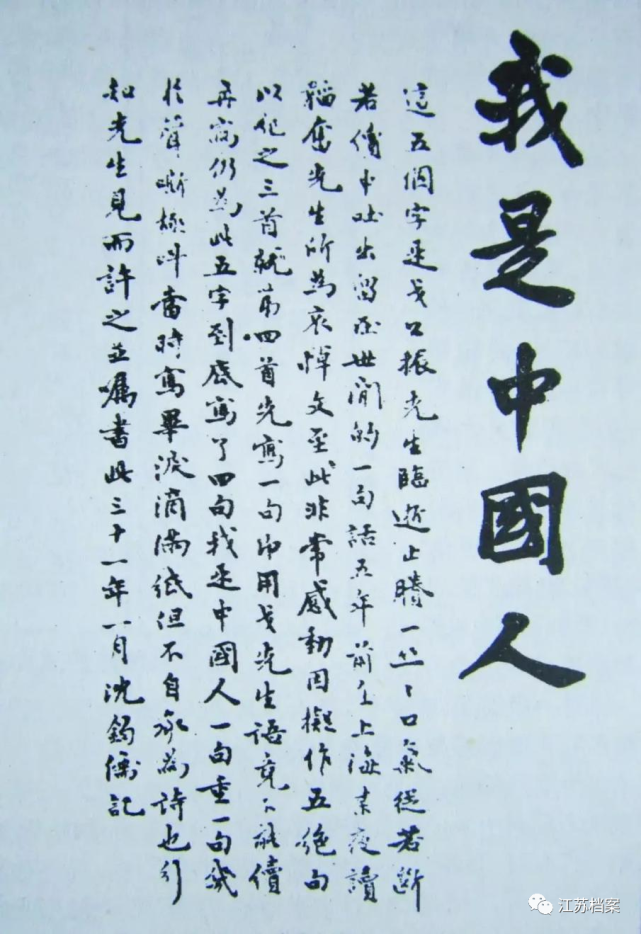 我是中國人
這五個字是戈公振先生臨逝止賸一丝〻口氣從若斷
若續中吐出留在世間的一句話五年前在上海夜讀
韜奮先生所為哀悼文至此非常感動因擬作五絕句
以紀之三首就第四首先寫一句即用戈先生語竟不能續
再寫仍為此五字到底寫了四句我是中國人一句重一句幾
於聲嘶極叫當時寫畢淚滴滿紙但不自承為詩也行
知先生見而許之並囑書此三十一年一月沈鈞儒記
江苏档案